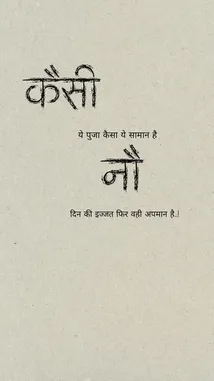 कैसी
ये पुजा कैसा ये सामान है
नौ
दिन की इज्जत फिर वही अपमान है.!